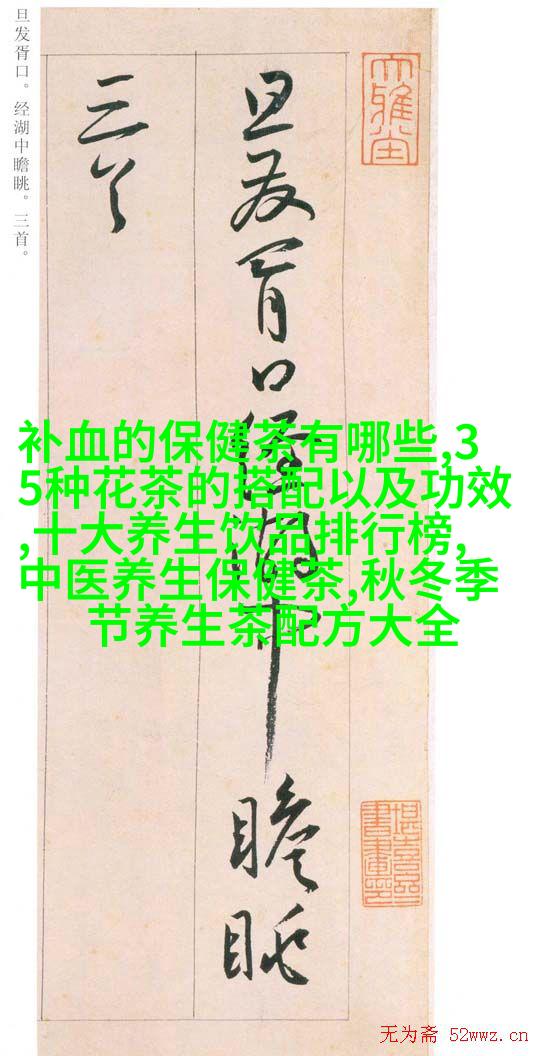 旦发胥口。经湖中瞻眺。三首。
旦發胥口經湖中瞻眺
三首
补血的保健茶有哪些,3
5种花茶的搭配以及功效
,十大养生饮品排行榜,
中医养生保健茶,秋冬季
节养生茶配方大全
无为斋 52wwz.cn